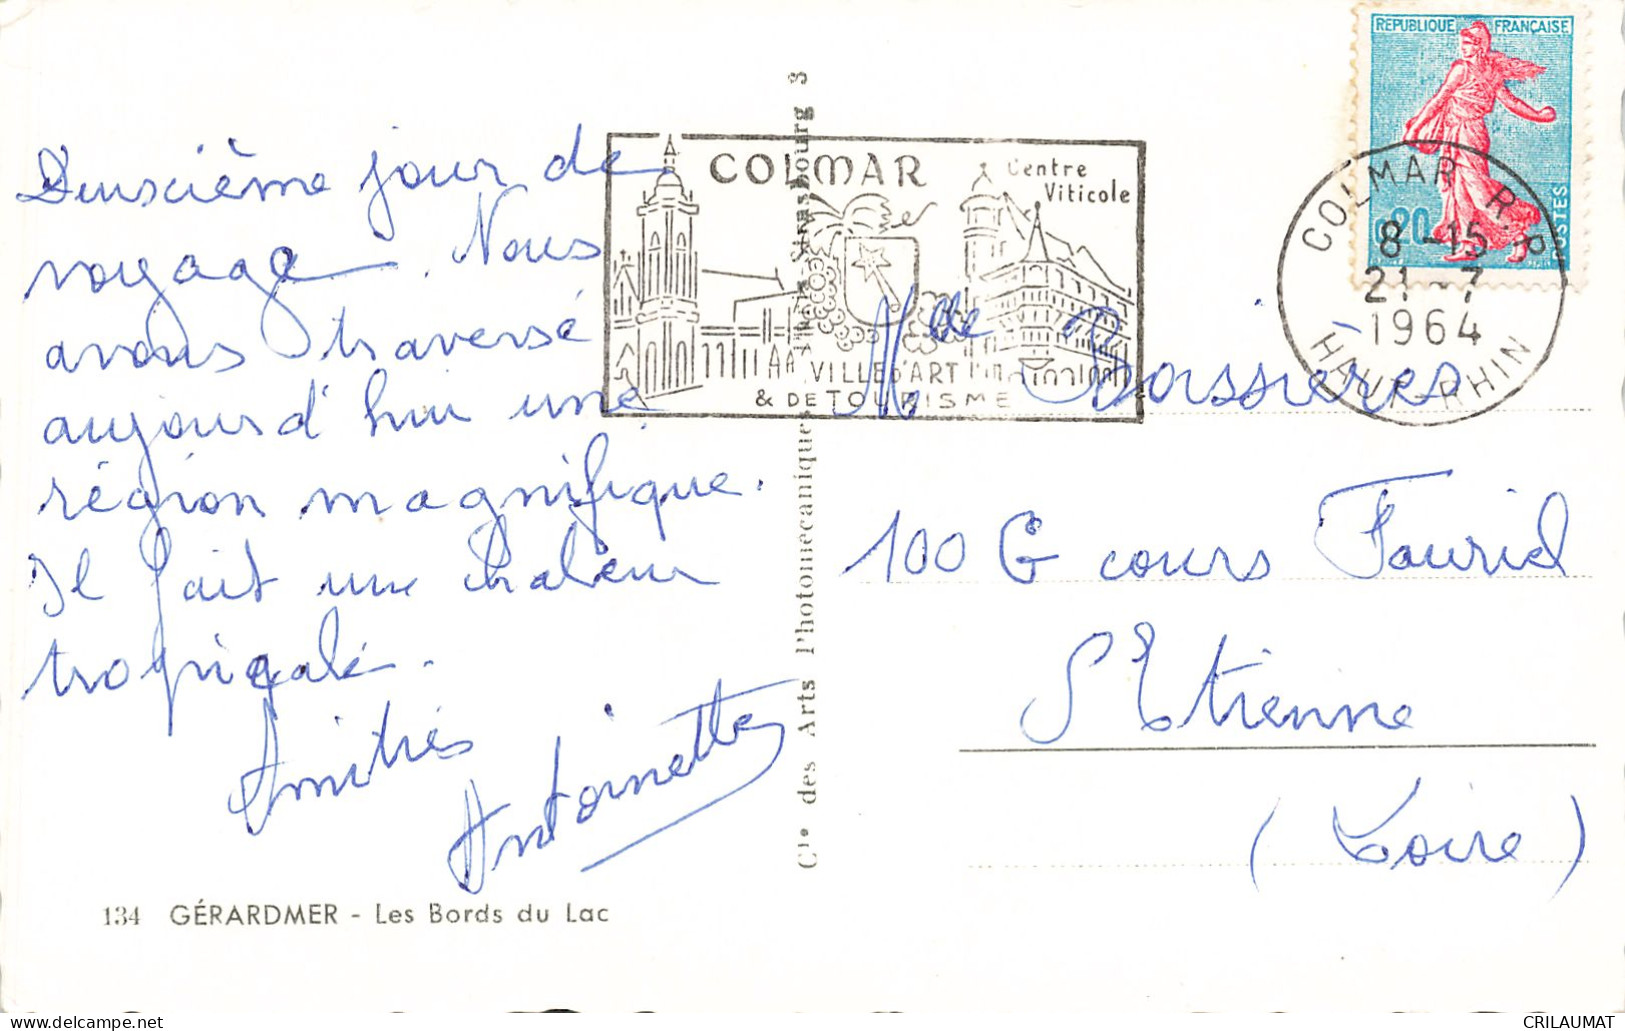 Deuxième jour de
voyage. Nous
avons traversé
aujourd'hui une
région magnifique.
Il fait une chaleur
tropicale.
Amitiés
Antoinette
134 GÉRARDMER - Les Bords du Lac
Cie des Arts Photomécaniques Strasbourg 3
COLMAR
Centre
Viticole
VILLE D'ART
& DE TOURISME
REPUBLIQUE FRANÇAISE
0,20
POSTES
COLMAR R.P.
8-15
21-7
1964
HAUT-RHIN
Mlle
100 G cours Fauriel
St Etienne
(Loire)
CRILAUMAT